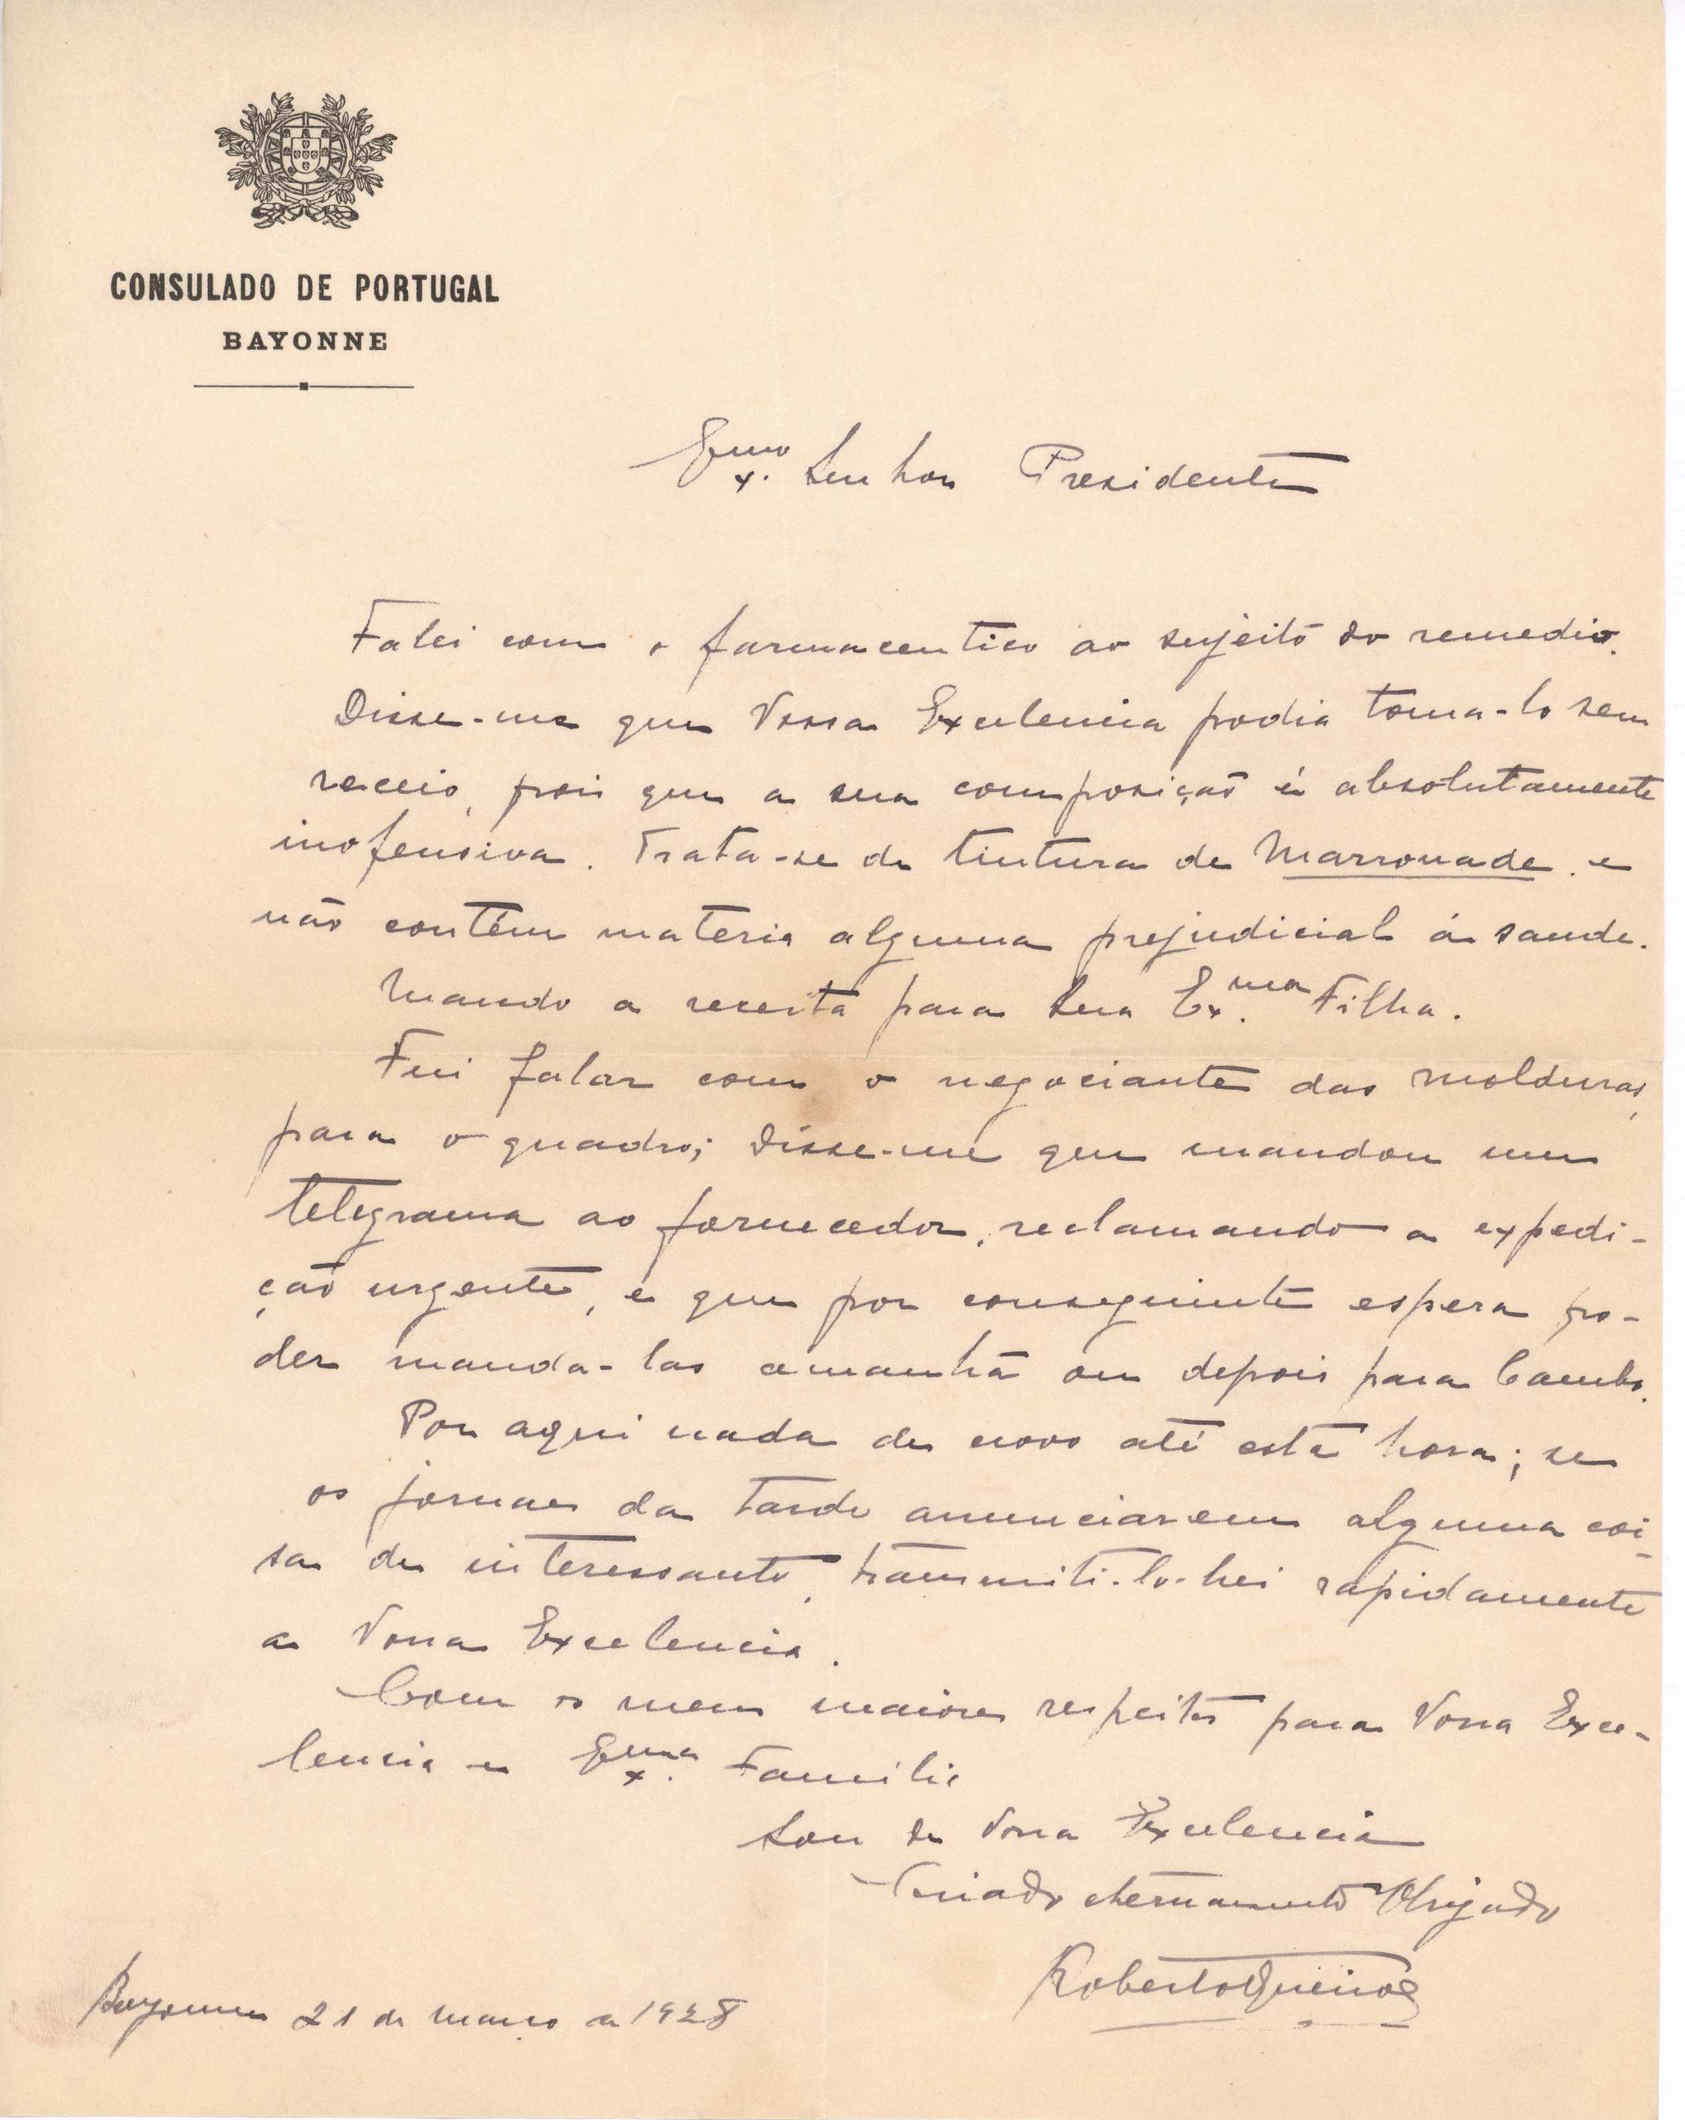 CONSULADO DE PORTUGAL
BAYONNE
Exmo. Senhor Presidente
Falei com o farmaceutico ao sujeito do remedio.
Disse-me que Vossa Excelencia podia toma-lo sem
receio, pois que a sua composição é absolutamente
inofensiva. Trata-se de tintura de Marronade e
não contêm materia alguma prejudicial á saude.
Mando a receita para Sua Ex.ma Filha.
Fui falar com o negociante das molduras,
para o quadro; disse-me que mandou um
telegrama ao fornecedor, reclamando a expedi-
ção urgente, e que por conseguinte espera po-
der manda-las amanhã ou depois para Cambo.
Por aqui nada de novo até esta hora; se
os jornaes da tarde anunciarem alguma coi-
sa de interessante, transmiti-lo-hei rapidamente
a Vossa Excelencia.
Com os meus maiores respeitos para Vossa Exce-
lencia e Exma. Familia
Sou de Vossa Excelencia
Criado eternamente Obrigado
Roberto Queiroz
Bayonne 21 de março de 1928